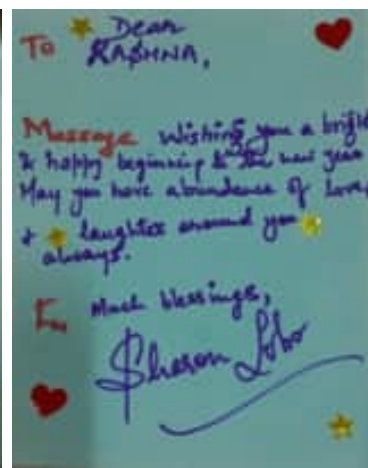 To Dear
RASHNA,
Message Wishing you a bright
& happy beginning to the new year
May you have abundance of Love,
& laughter around you
always.
Much blessings,
Sharon Lobo